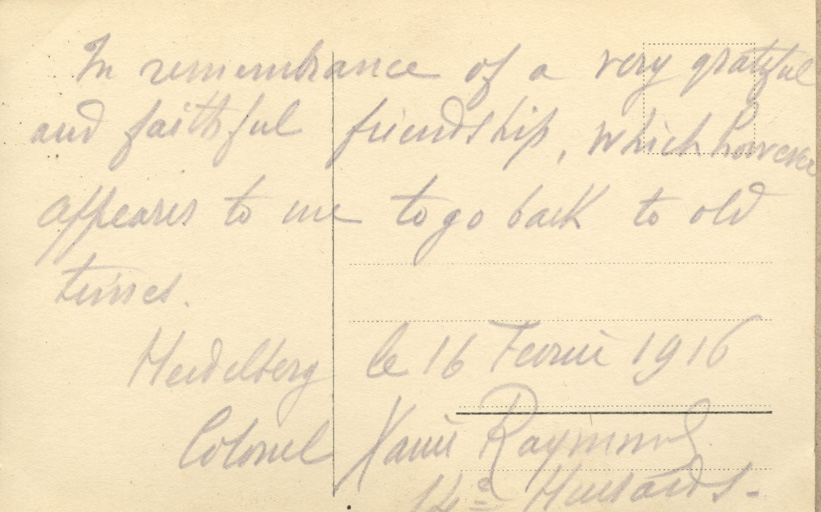 In remembrance of a very grateful
and faithful friendship, which however
appears to me to go back to old
times.
Heidelberg le 16 Fevrier 1916
Colonel Raymond
14e Hussards.